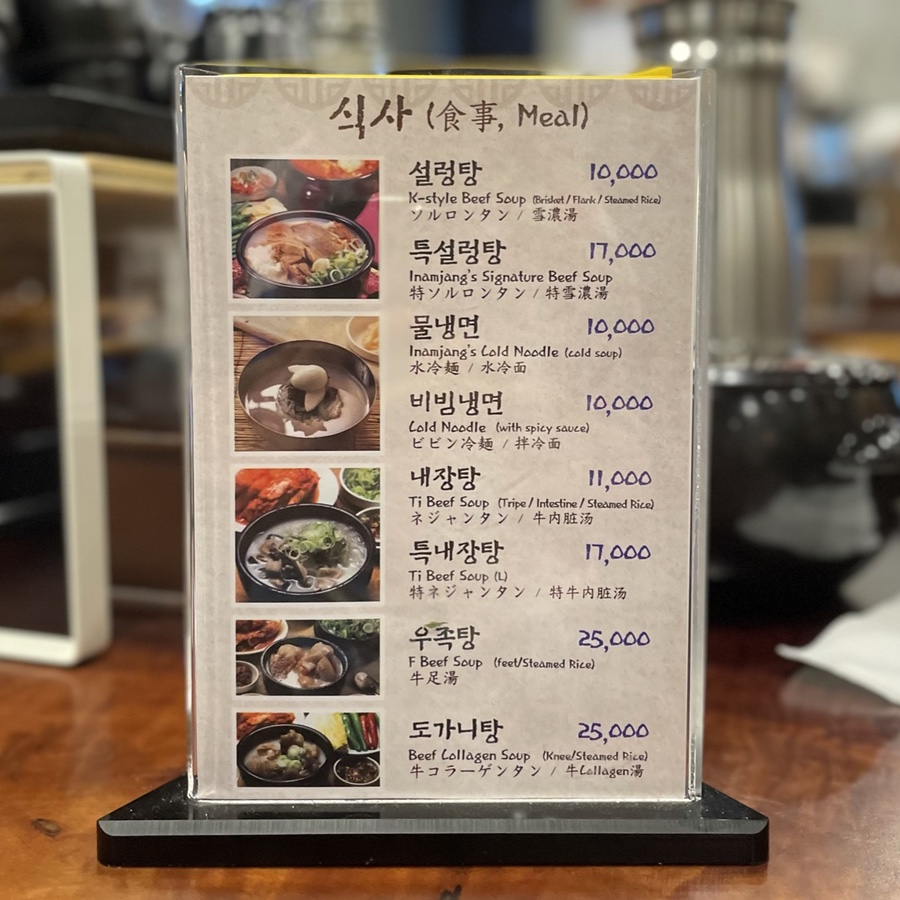 식사 (食事, Meal)
설렁탕 10,000
K-style Beef Soup (Brisket / Flank / Steamed Rice)
ソルロンタン / 雪濃湯
특설렁탕 17,000
Inamjang's Signature Beef Soup
特ソルロンタン / 特雪濃湯
물냉면 10,000
Inamjang's Cold Noodle (cold soup)
水冷麺 / 水冷面
비빔냉면 10,000
Cold Noodle (with spicy sauce)
ビビン冷麺 / 拌冷面
내장탕 11,000
Ti Beef Soup (Tripe / Intestine / Steamed Rice)
ネジャンタン / 牛内脏汤
특내장탕 17,000
Ti Beef Soup (L)
特ネジャンタン / 特牛内脏汤
우족탕 25,000
F Beef Soup (feet/Steamed Rice)
牛足湯
도가니탕 25,000
Beef Collagen Soup (Knee/Steamed Rice)
牛コラーゲンタン / 牛Collagen湯